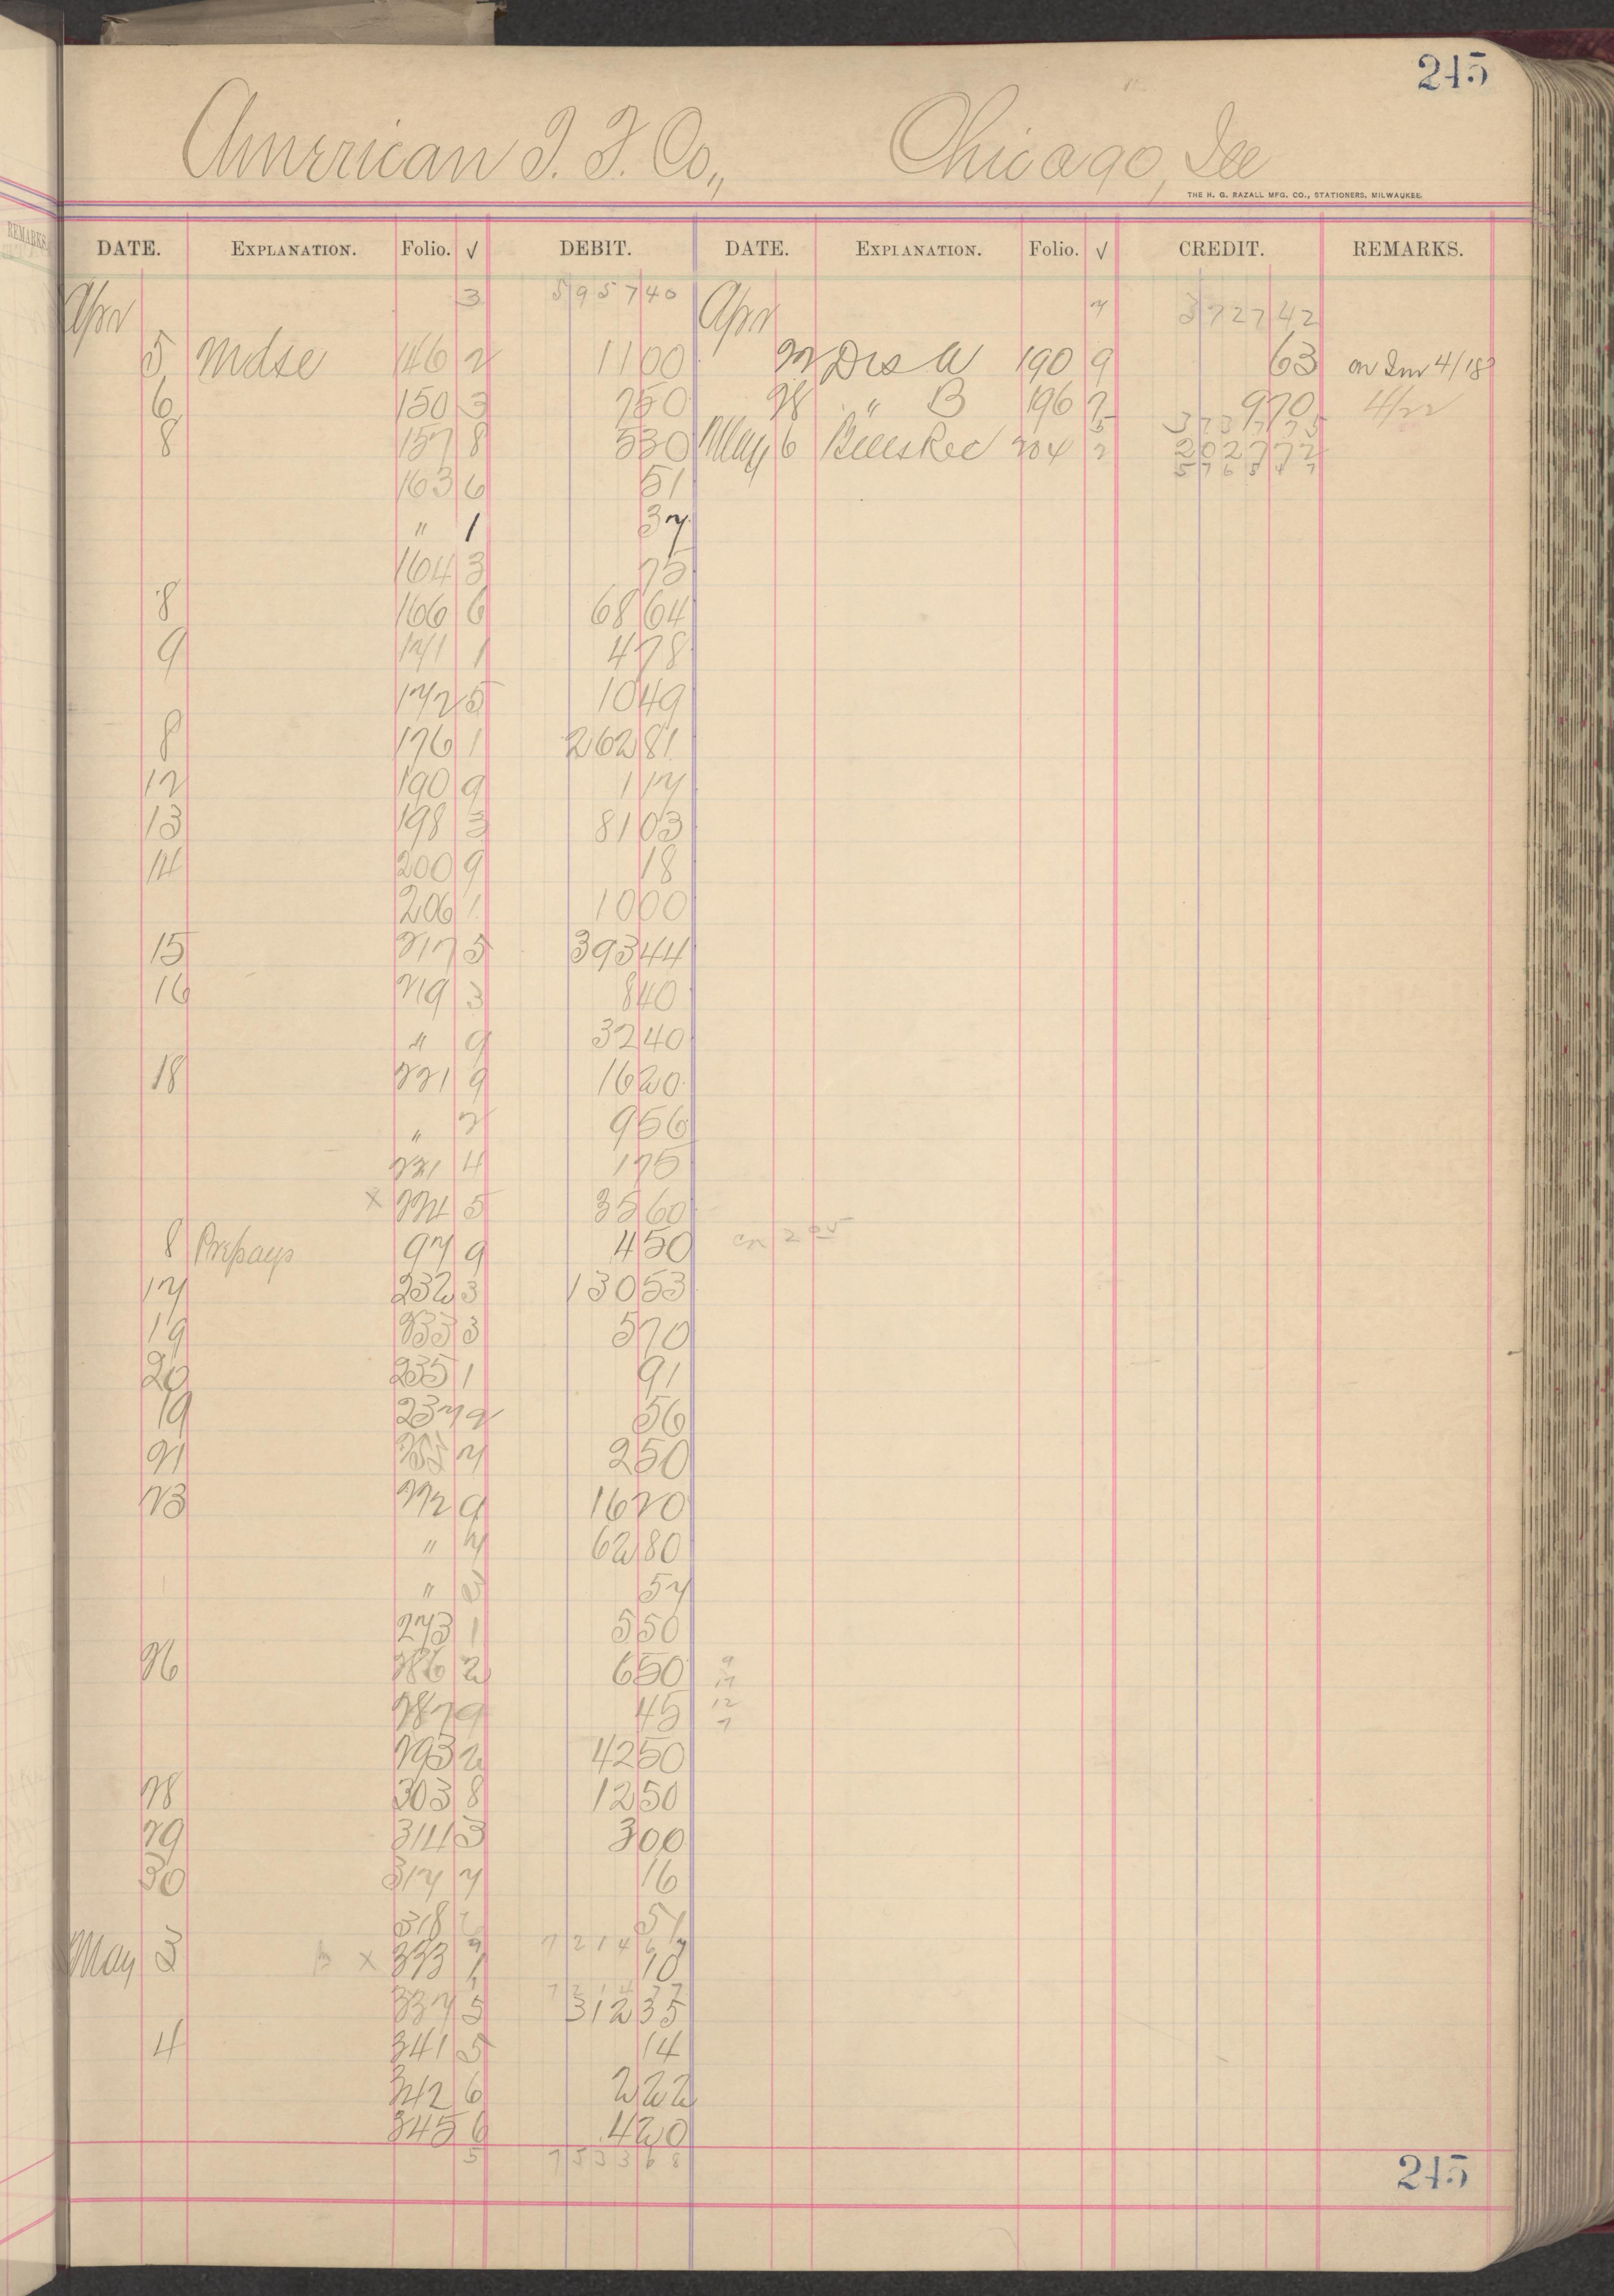 245
American T. F. Co., Chicago, Ill
THE H. G. RAZALL MFG. CO., STATIONERS, MILWAUKEE.
REMARKS.
DATE. EXPLANATION. Folio. √ DEBIT. DATE. EXPLANATION. Folio. √ CREDIT. REMARKS.
Apr 3 5957 40 Apr 7 3727 42
5 Mdse 146 2 11 00 22 Dis A 190 9 63 on Inv 4/18
6 150 3 7 50 28 " B 196 2 9 70 4/22
3737 75
8 157 8 5 30 May 6 Bills Rec 204 2 2027 72
5765 47
163 6 51
" 1 37
164 3 75
8 166 6 68 64
9 171 1 4 78
172 5 10 49
8 176 1 262 81
12 190 9 1 17
13 198 3 81 03
14 200 9 18
206 1 10 00
15 217 5 393 44
16 219 3 8 40
" 9 32 40
18 221 9 16 20
" 2 9 56
221 4 1 75
x 224 5 35 60
8 Prepays 97 9 4 50 cr 2 05
17 232 3 130 53
19 233 3 5 70
20 235 1 91
19 237 2 56
21 7 2 50
23 272 9 16 20
" 7 62 80
" 57
273 1 5 50
26 286 2 6 50 9
17
287 9 45 12
7
293 2 42 50
28 303 8 12 50
29 314 3 3 00
30 317 7 16
318 51
7214 67
May 3 x 333 1 10
337 5 312 35
4 341 5 14
342 6 2 22
345 6 4 20
5 7533 68
245